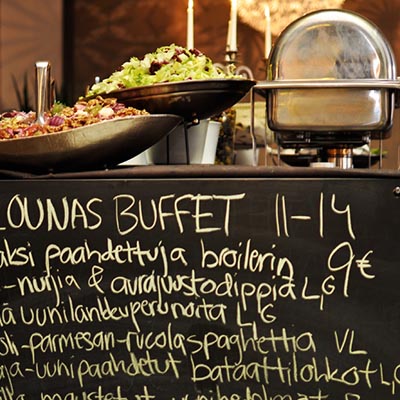 LOUNAS BUFFET 11-14
äksi paahdettuja broilerin 9€
-nurjia & aurajuustodippiä L,G
ä uunilankkuperunoita L, G
oli-parmesan-rucolaspaghettia VL
aja-uunipaahdetut bataattilohkot L,G
lla maustetut